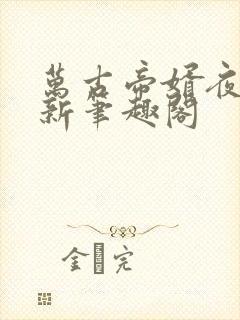 萬古帝婿夜
新筆趣閣
金 完